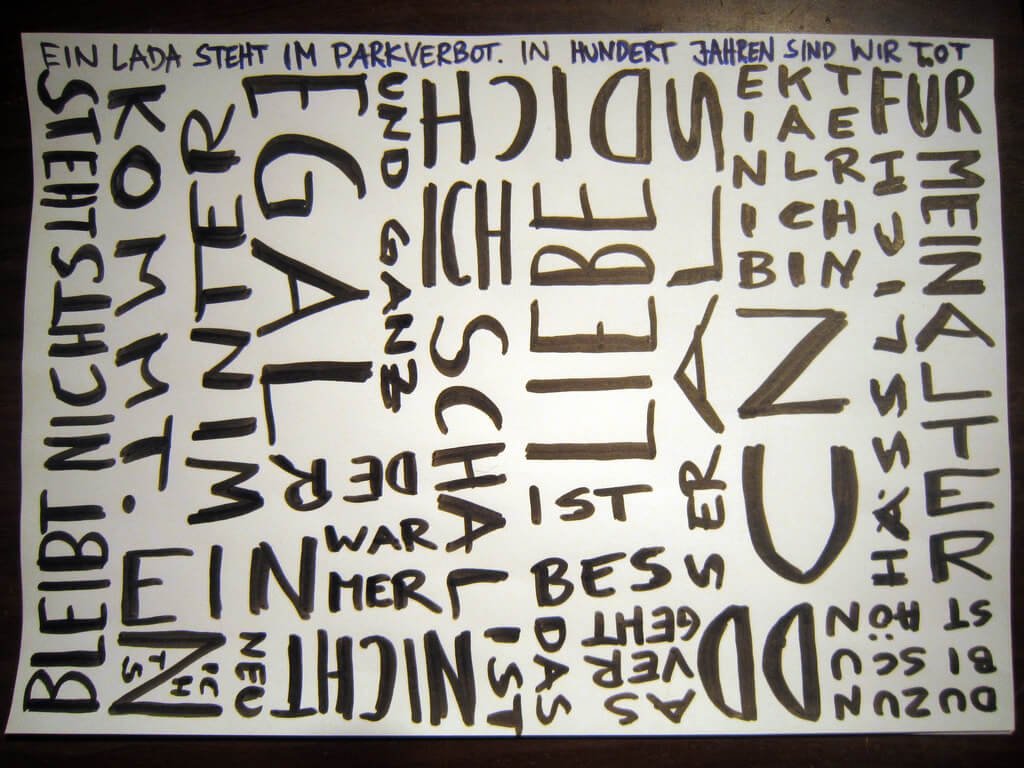 EIN LADA STEHT IM PARKVERBOT. IN HUNDERT JAHREN SIND WIR TOT
BLEIBT NICHTS
STEHT
KOMMT.
WINTER
EGAL
UND GANZ
DICH
ICH
LIEBE
SCHAL
EKT
IAE
NLR
ICH
BIN
FÜR
MEIN ALTER
ZU
DER
WAR
MER
IST
BES
SER
ALS
NEIN
NICHTS
NEU
NICHT
IST
DAS
VERGEHT
DU
NUN
SCHÖN
DU BIST
ZU